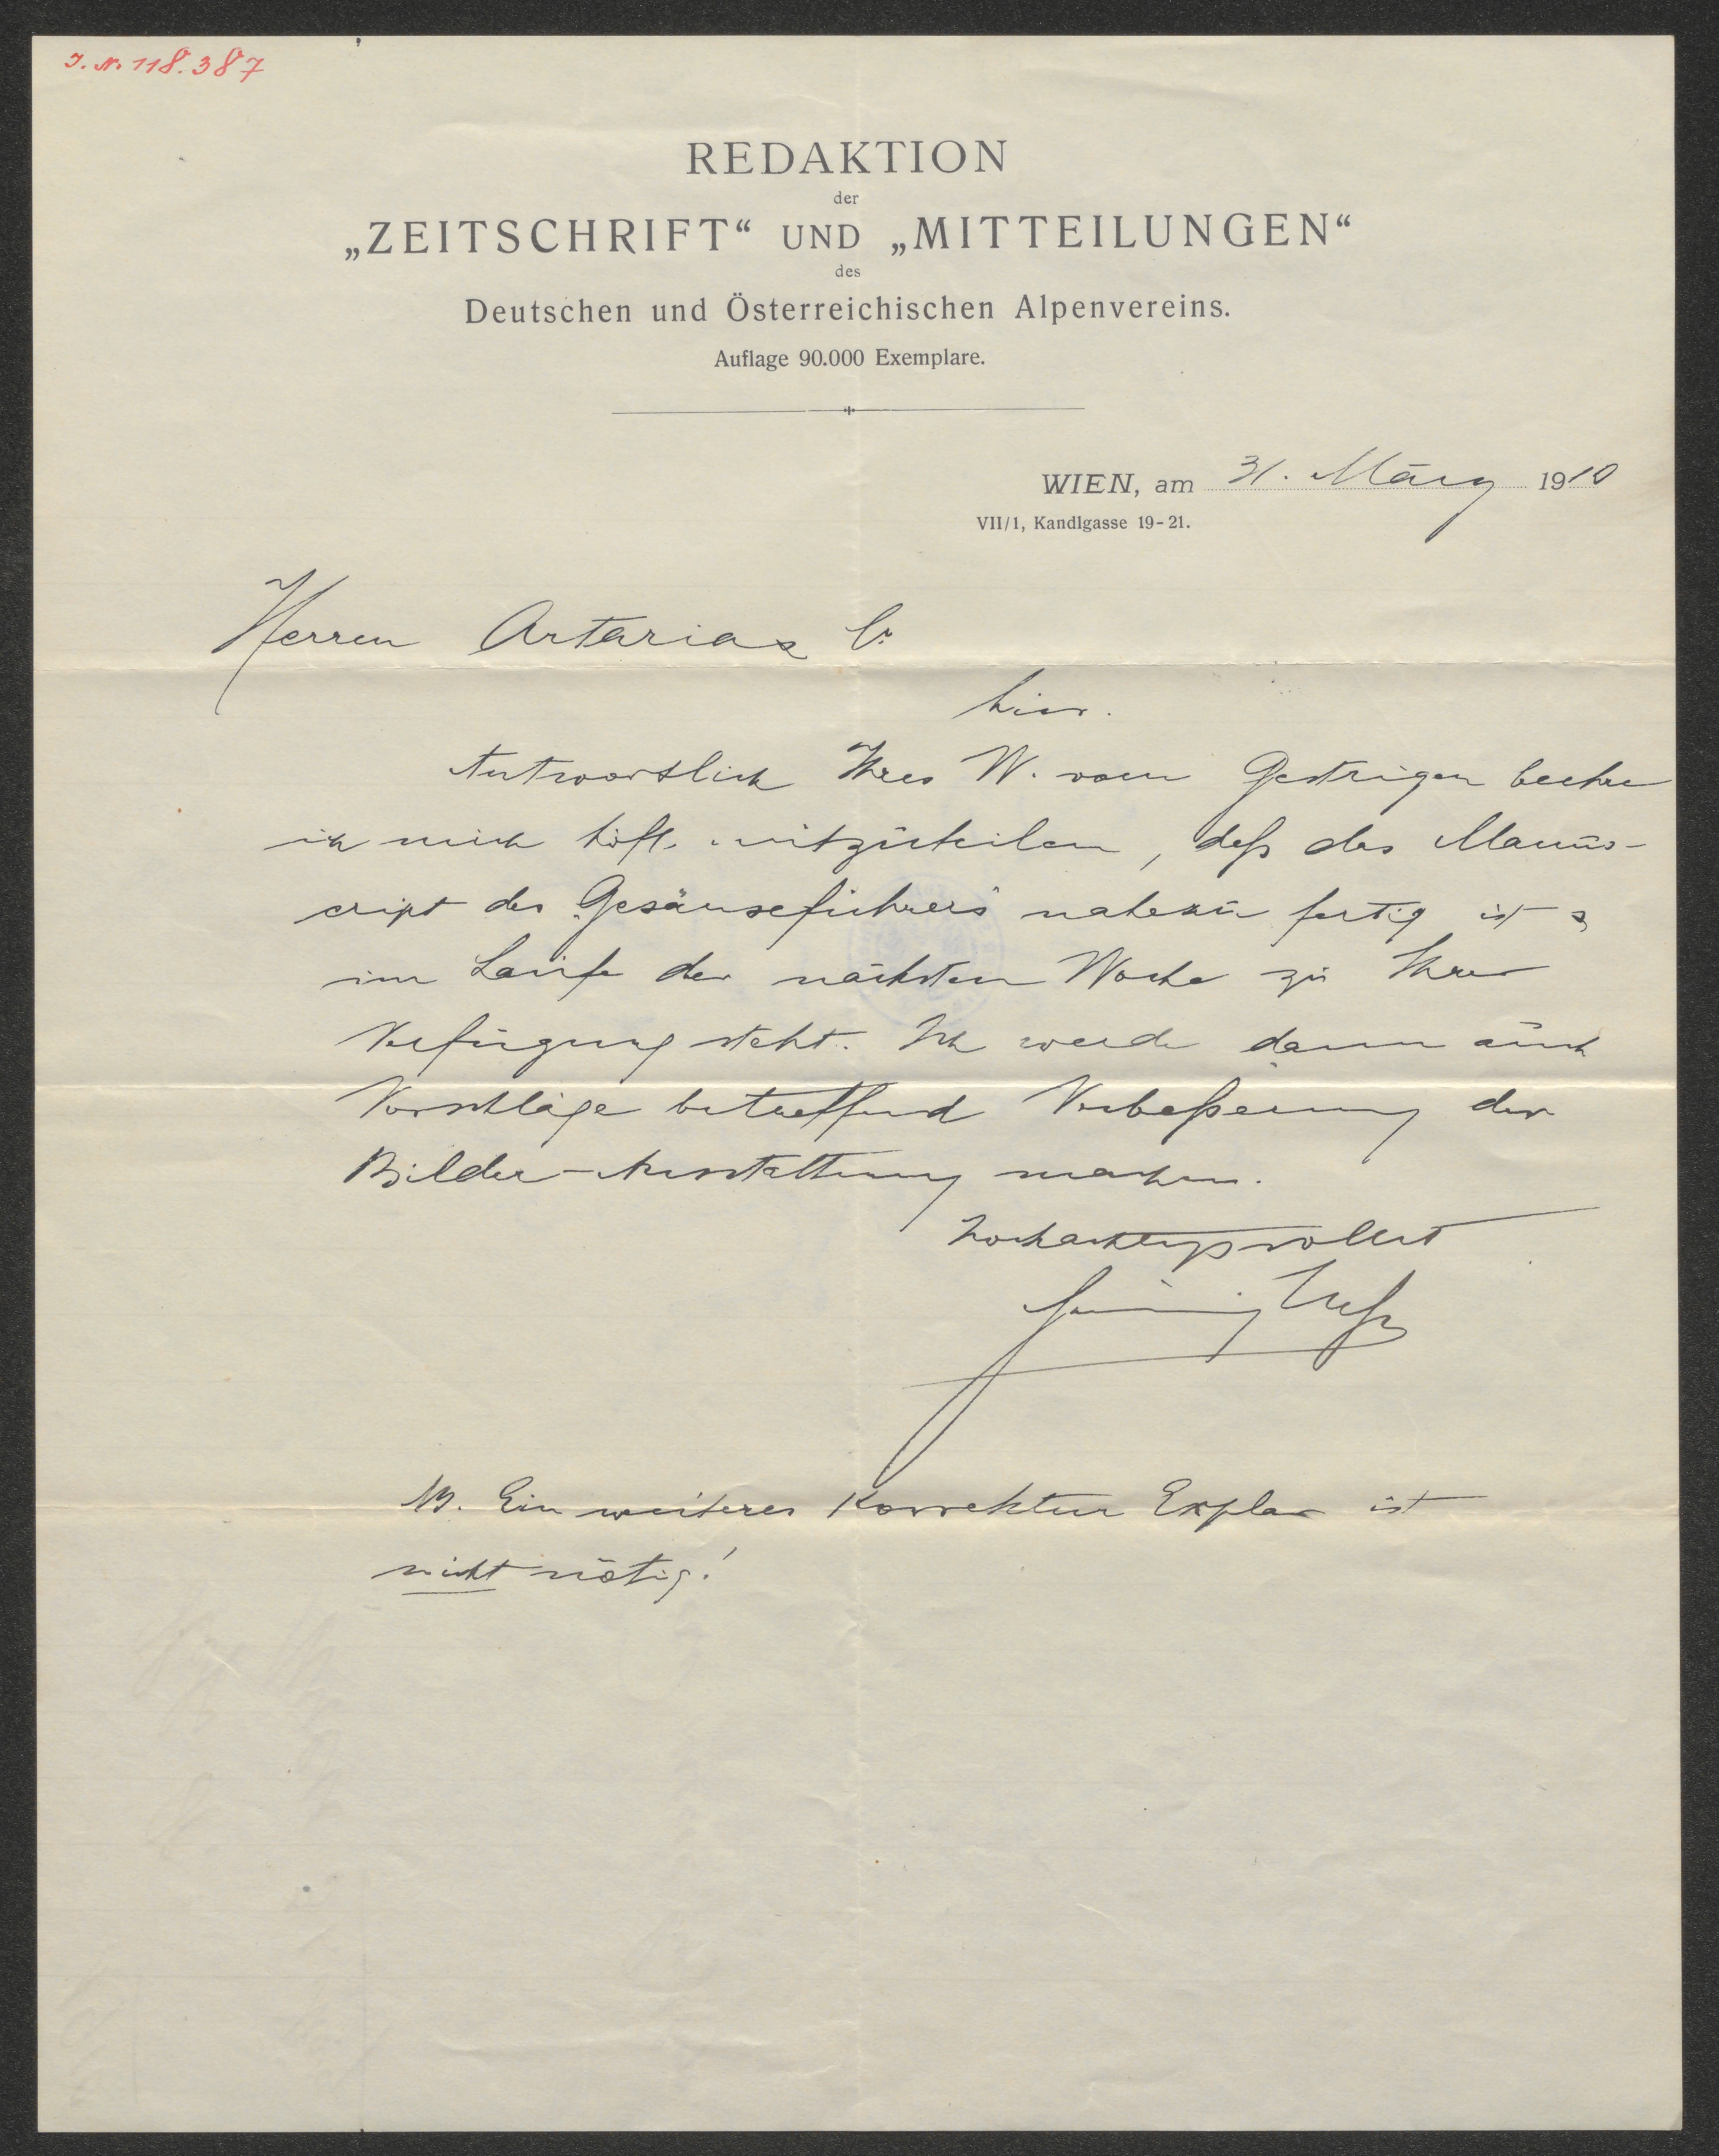 J. N. 118.387
REDAKTION
der
„ZEITSCHRIFT“ UND „MITTEILUNGEN“
des
Deutschen und Österreichischen Alpenvereins.
Auflage 90.000 Exemplare.
WIEN, am 31. März 1910
VII/1, Kandlgasse 19-21.
Herren Artaria & Co
hier.
Antwortlich Ihres W. vom Gestrigen beehre
ich mich höfl. mitzuteilen, daß das Manus-
cript des „Gesäuseführers“ nahezu fertig ist &
im Laufe der nächsten Woche zu Ihrer
Verfügung steht. Ich werde dann auch
Vorschläge betreffend Verbeßerung der
Bilder-Ausstattung machen.
Hochachtungsvollst
Heß
NB. Ein weiteres Korrektur Explar ist
nicht nötig!